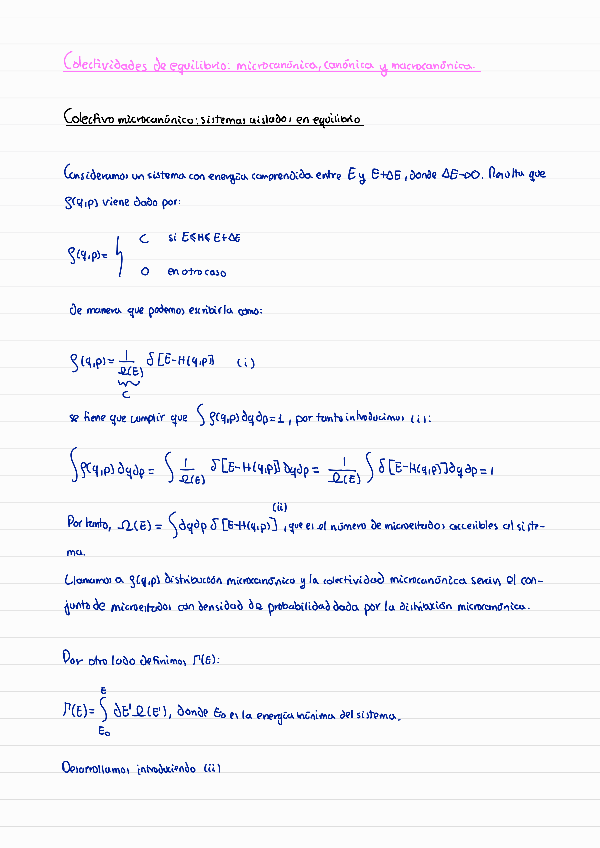 Colectividades de equilibrio: microcanónica, canónica y macrocanónica.
Colectivo microcanónico: sistemas aislados en equilibrio
Consideramos un sistema con energía comprendida entre E y E+ΔE, donde ΔE→0. Resulta que
ρ(q,p) viene dado por:
ρ(q,p)= { C si E≤H≤E+ΔE
0 en otro caso
de manera que podemos escribirla como:
ρ(q,p)= 1/Ω(E) δ[E-H(q,p)] (i)
C
se tiene que cumplir que ∫ρ(q,p)dqdp=1, por tanto introducimos (i):
∫ρ(q,p)dqdp = ∫ 1/Ω(E) δ[E-H(q,p)]dqdp = 1/Ω(E) ∫ δ[E-H(q,p)]dqdp = 1
(ii)
Por tanto, Ω(E) = ∫dqdp δ[E-H(q,p)], que es el número de microestados accesibles al siste-
ma.
Llamamos a ρ(q,p) distribución microcanónica y la colectividad microcanónica serán el con-
junto de microestados con densidad de probabilidad dada por la distribución microcanónica.
Por otro lado definimos Γ(E):
Γ(E)= ∫_{E₀}^{E} dE' Ω(E'), donde E₀ es la energía mínima del sistema.
Desarrollamos introduciendo (ii)